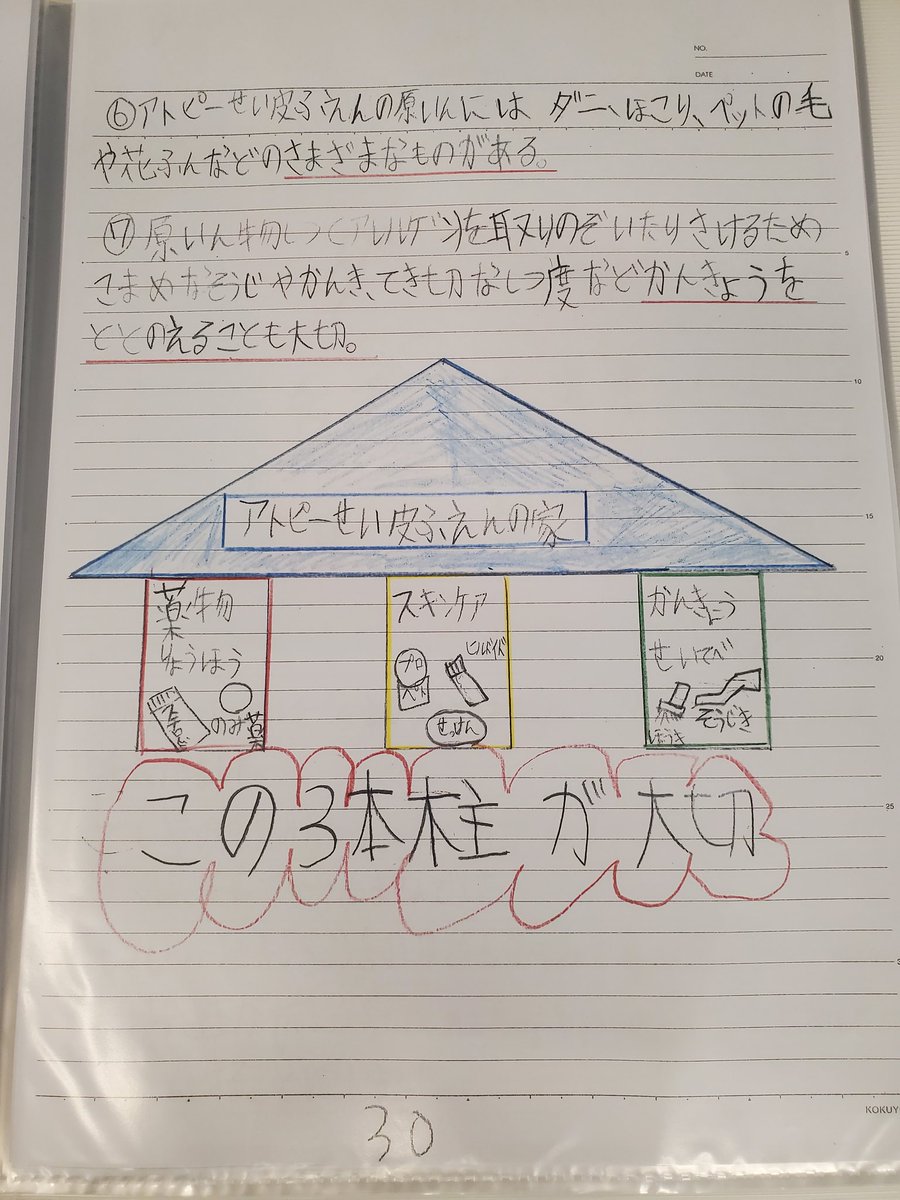 NO.
DATE
⑥アトピーせい皮ふえんの原いんには ダニ、ほこり、ペットの毛
や花ふんなどのさまざまなものがある。
⑦原いん物しつ(アレルゲン)を取りのぞいたりさけるため
こまめなそうじやかんき、てき切なしつ度などかんきょうを
ととのえることも大切。
5
10
アトピーせい皮ふえんの家
15
薬物
りょうほう
のみ薬
スキンケア
プロ
ペト
ヒルドイド
せっけん
かんきょう
せいび
ほうき
そうじき
20
この3本柱が大切
25
KOKUY
30